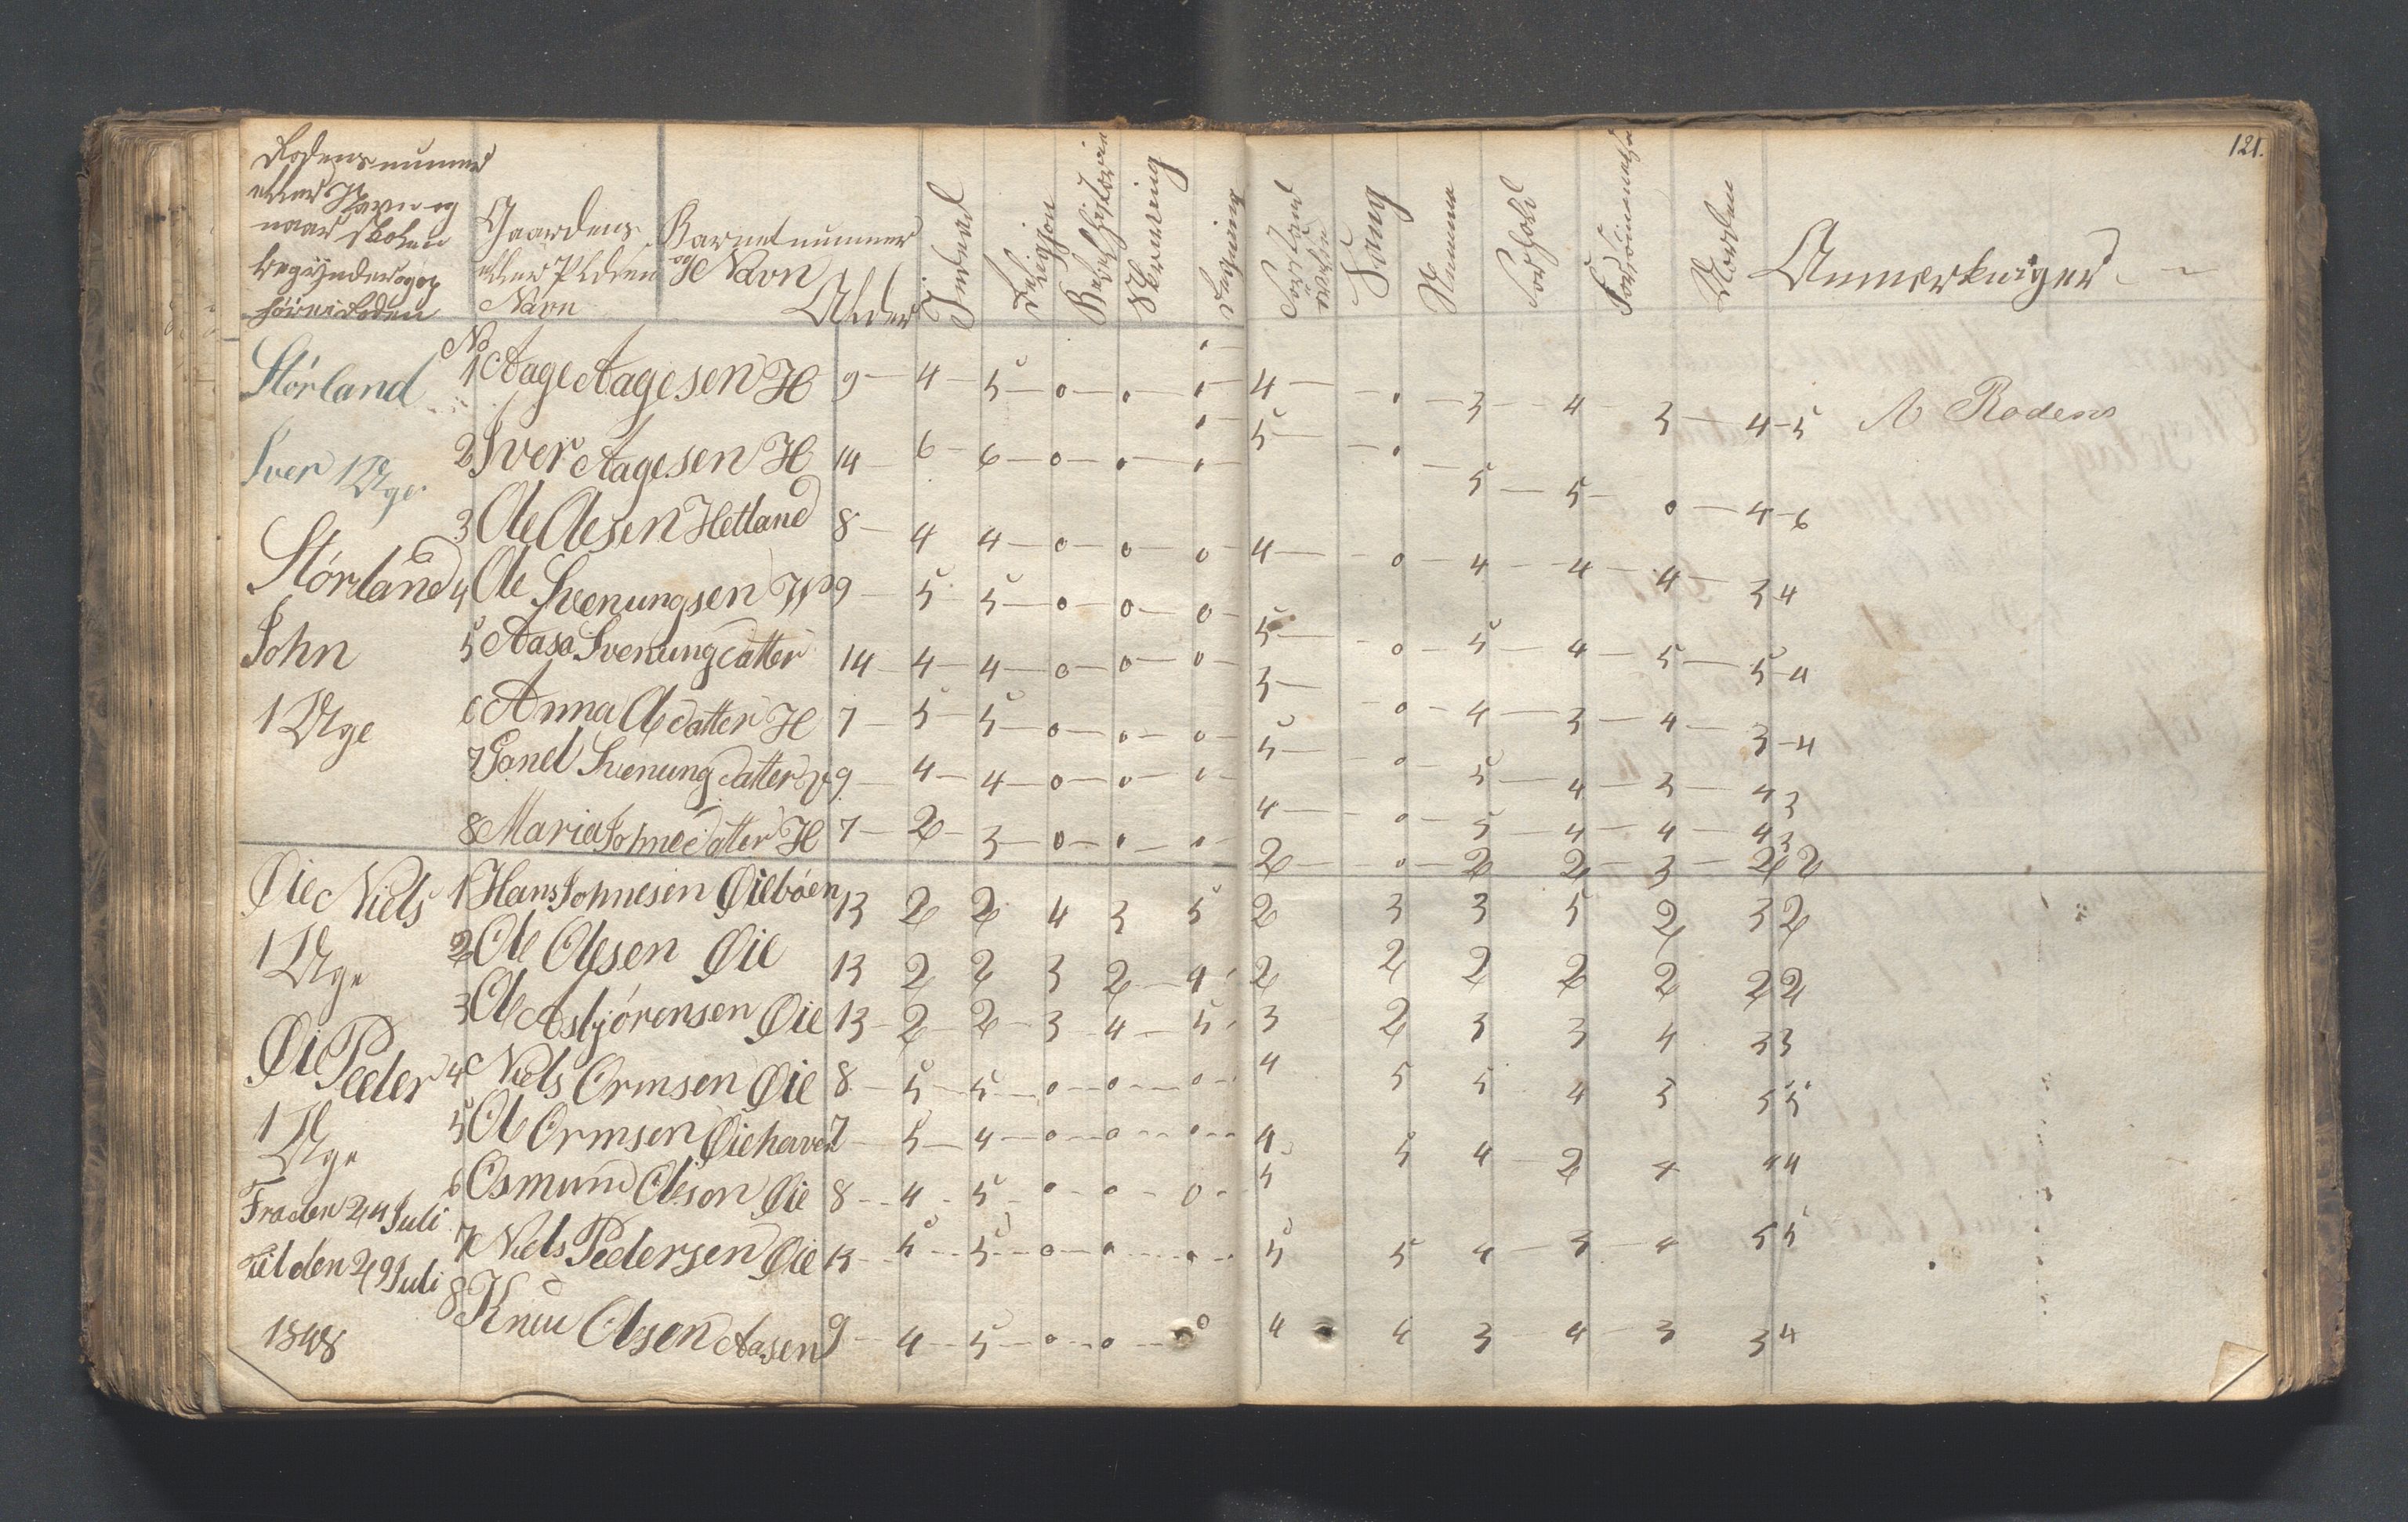 121.
Rodens nummer
eller Navn og
naar Skolen
begynder og op
hører i Roden
Gaardens
eller Pladsens
Navn
Barnet nummer
og Navn
Alder
Religion
Bibelhistorie
Skrivning
Regning
Sang
Stemme
Forhold
Forsømmelse
Anmærkninger
Störland No 1 Aage Aagesen H 9 - 4 - 5 - 0 - . - . - 4 - . - 3 - 4 - 3 - 4 - 5 A Rodens
Iver 1 Uge 2 Iver Aagesen H 14 - 6 - 6 - 0 - . - . - 5 - . - 5 - 5 - 0 - 4 - 6
3 Ole Olesen Hetland 8 - 4 4 - 0 - 0 - 0 4 - 0 - 4 - 4 - 4 - 3 4
Störland 4 Ole Svenungsen 9 - 5 - 5 - 0 - 0 - 0 - 5 - 0 - 5 - 4 - 5 - 5 - 4
John 5 Aasa Svenungdatter 14 - 4 - 4 - 0 - 0 - 0 - 3 - 0 - 4 - 3 - 4 - 3 - 4
1 Uge 6 Anna Oledatter H 7 - 5 - 5 - 0 - 0 - 0 - 5 - 0 - 5 - 4 - 3 - 4 3
7 Gonel Svenung datter 9 - 4 - 4 - 0 - 0 - 0 - 4 - 0 - 5 - 4 - 4 - 4 3
8 Maria Johnedatter H 7 - 2 - 3 - 0 - . - . - 2 - 0 - 2 2 - 3 - 2 2
Øie Niels 1 Hans Johnesen Øiebøen 13 2 2 4 3 5 2 3 3 5 2 3 2
1 Uge 2 Ole Olesen Øie 13 2 2 3 2 - 4 - 2 2 2 2 2 2 2
3 Ole Asbjörensen Øie 13 - 2 - 2 - 3 - 4 - 5 - 3 2 3 3 4 3 3
Øie Peder 4 Niels Ormsen Øie 8 - 5 - 5 - 0 - 0 - 0 - 4 5 5 4 3 5 5
1 Uge 5 Ole Ormsen Øiehaven 7 - 5 - 4 - 0 - 0 - 0 - 4 5 4 - 2 4 4 4
Fra den 24 Juli 6 Osmund Oleson Øie 8 - 4 - 5 - 0 - 0 - 0 - 5
til den 29 Juli 7 Niels Pedersen Øie 13 - 5 - 5 - 0 - 0 - 0 - 5 5 4 - 3 - 4 5 5
1848 8 Knud Olsen Aasen 9 - 4 - 5 - 0 - 0 - 0 4 4 3 - 4 - 3 3 4